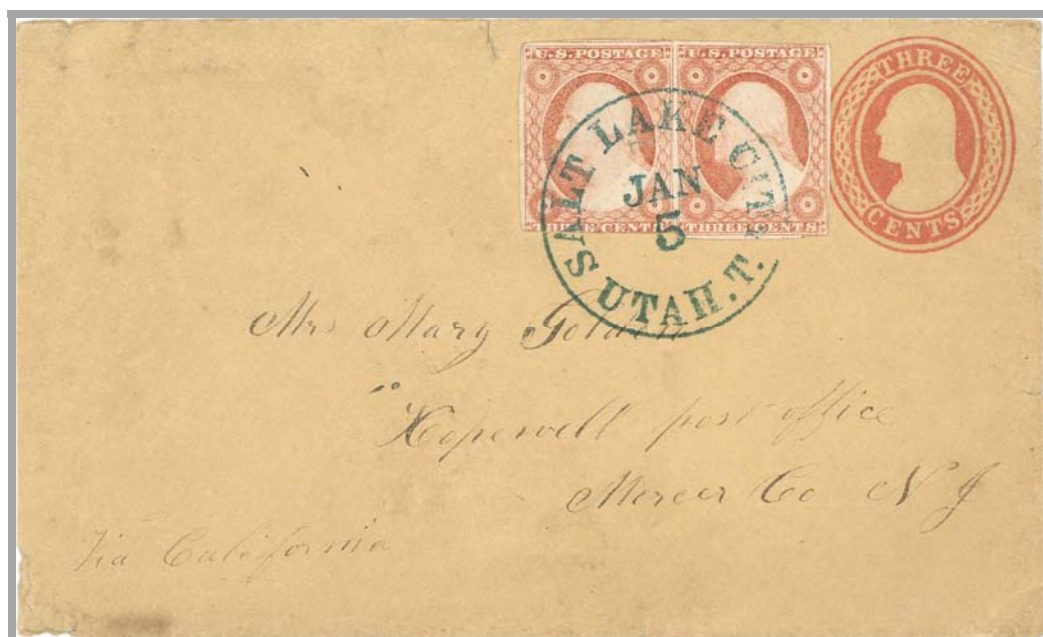 U.S. POSTAGE U.S. POSTAGE
THREE
CENTS
THREE CENTS THREE CENTS
SALT LAKE CITY
JAN
5
UTAH.T.
Mrs Mary Golden
Hopewell post office
Mercer Co N J
Via California